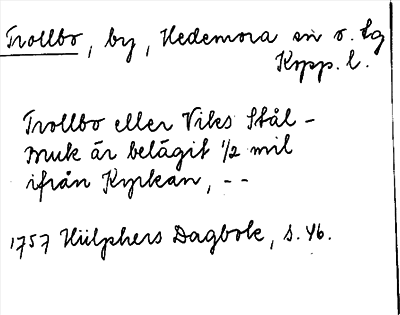 Trollbo, by, Hedemora sn o. lg
Kopp. l.
Trollbo eller Viks Stål-
Bruk är belägit 1/2 mil
ifrån Kyrkan, --
1757 Hülphers Dagbok, s. 46.